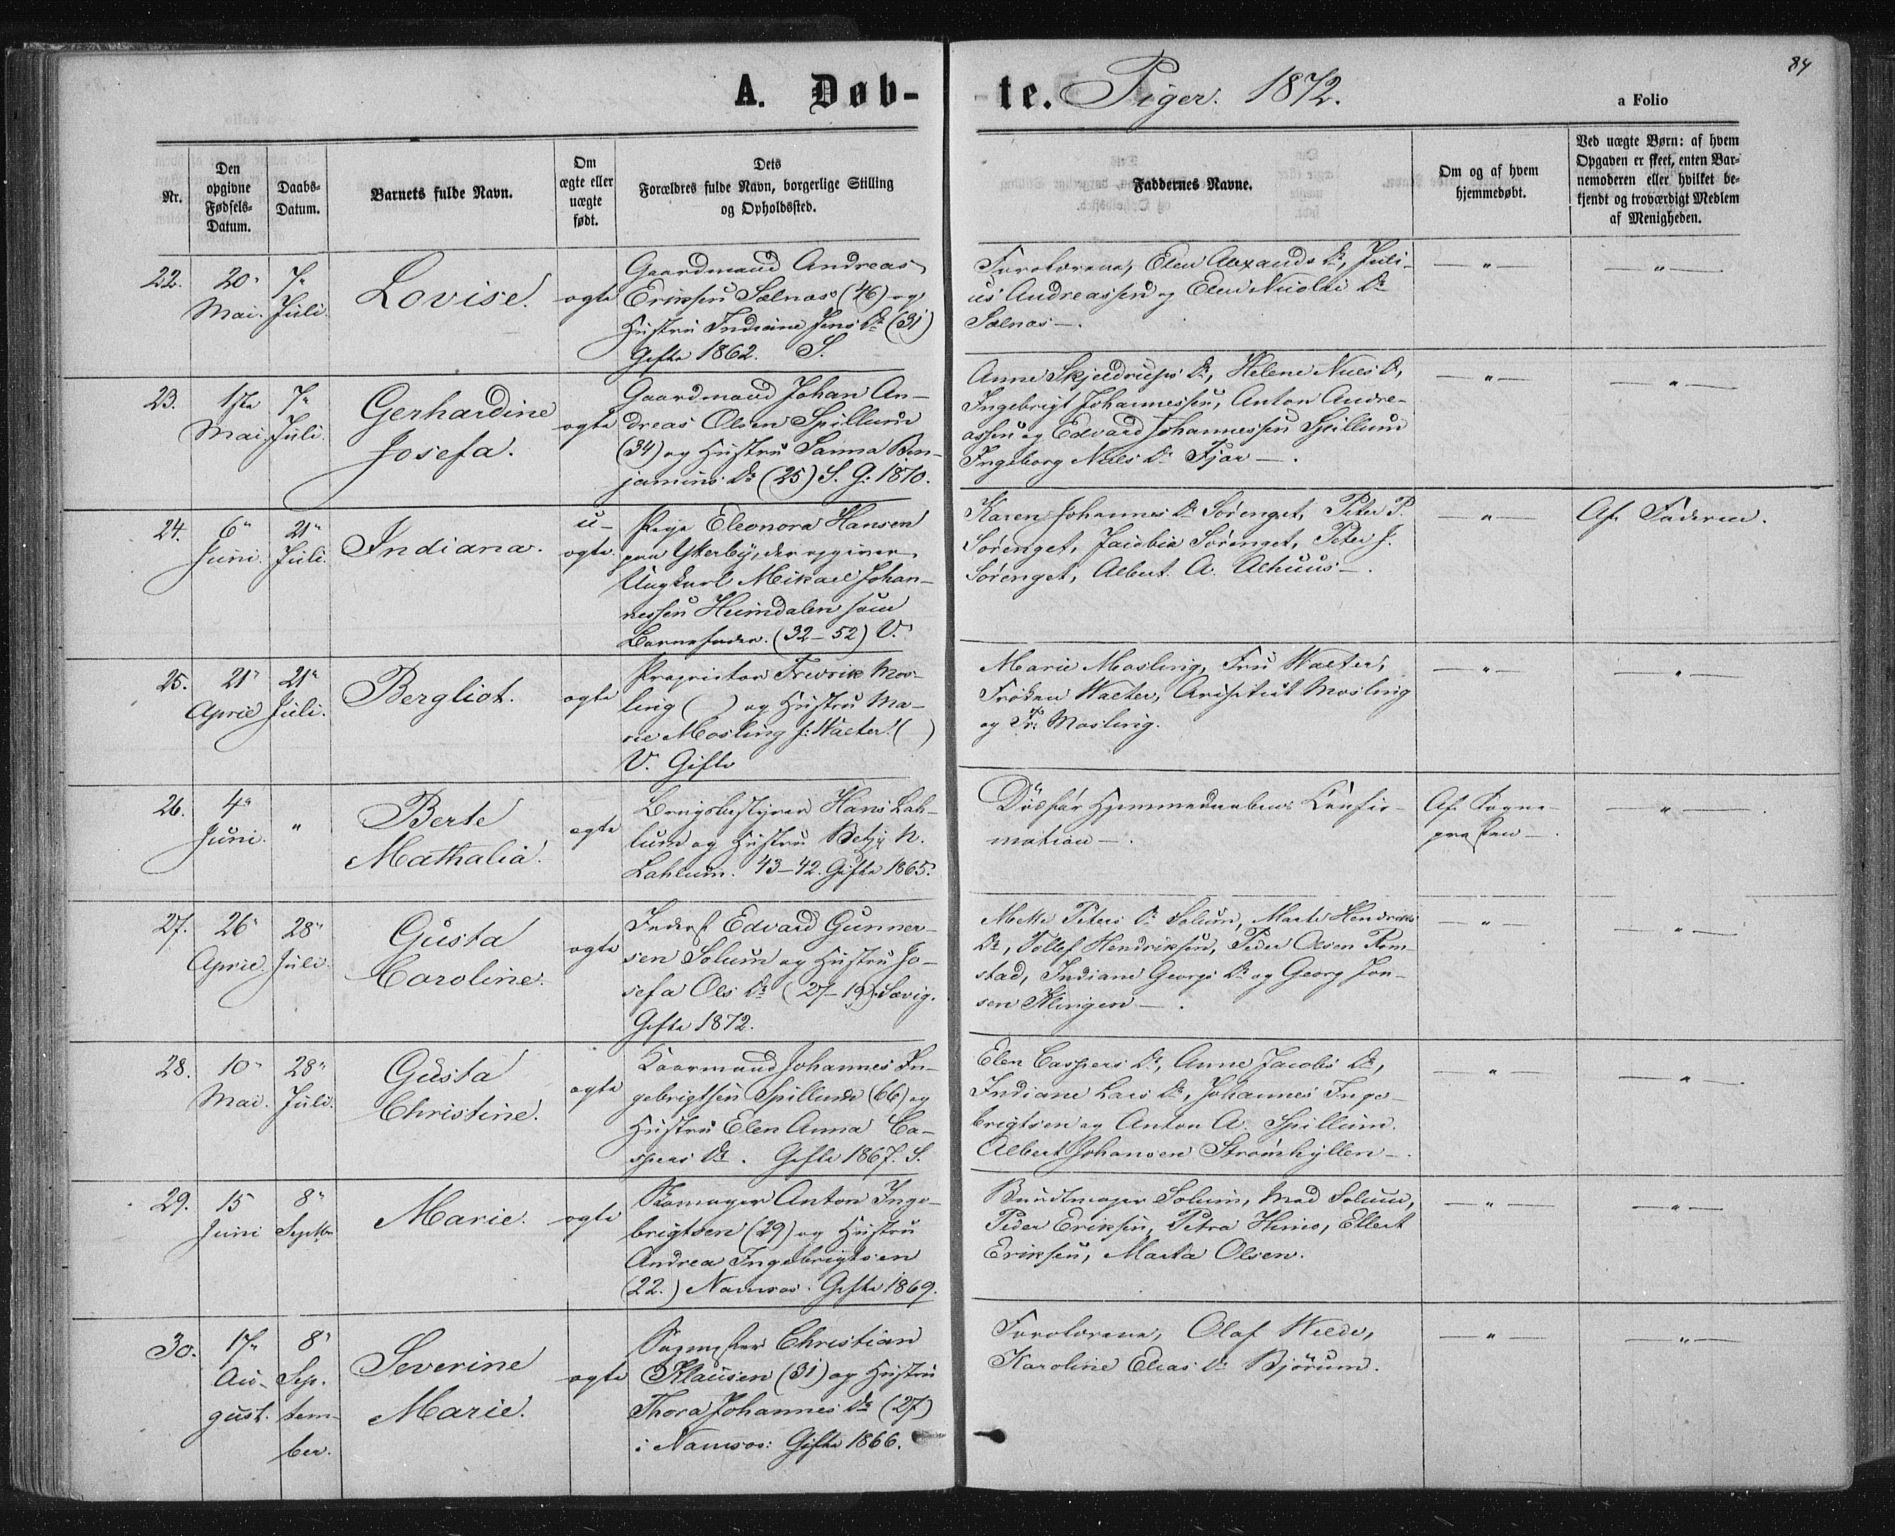 84
A. Døb-te. Piger. 1872.
a Folio
Nr.
Den opgivne Fødsels-Datum.
Daabs-Datum.
Barnets fulde Navn.
Om ægte eller uægte født.
Dets Forældres fulde Navn, borgerlige Stilling og Opholdssted.
Faddernes Navne.
Om og af hvem hjemmedøbt.
Ved uægte Børn: af hvem Opgaven er skeet, enten Barnemoderen eller hvilket bekjendt og troværdigt Medlem af Menigheden.
22. 20" Mai. 7" Juli. Lovise. ægte
Gaardmand Andreas
Eriksen Sælnæs (46) og
Hustru Indiane Jens Dr (31)
Gifte 1862. S.
Forældrene, Elen Dr, Juli-
us Andreassen og Elen Nicolai Dr
Sælnæs —.
— " — — " —
23. 1ste Mai. 7" Juli. Gerhardine Josefa. ægte
Gaardmand Johan An-
dreas Olsen Spillum
(34) og Hustru Sanna Ben-
jamins Dr (25) S. G: 1870.
Anne Skjeldrups Dr, Helene Niels Dr,
Ingebrigt Johannessen, Anton Andre-
assen og Edvard Johannessen Spillum
Ingeborg Niels Dr Fjær —.
— " — — " —
24. 6" Juni. 21" Juli. Indiana. u-ægte
Pige Eleonora Hansen
paa Ytterby, der opgiver
Ungkarl Mikael Johan-
nessen Heimdalen som
Barnefader. (32-52) V.
Karen Johannes Dr Sørenget, Peter P.
Sørenget, Jacobia Sørenget, Peter J.
Sørenget, Albert A. Alhuus —.
— " — Af Faderen.
25. 21" April 21" Juli. Bergliot. ægte
Proprietær Fredrik Mos-
ling ( ) og Hustru Ma-
rie Mosling f: Walter. ( )
V. Gifte
Marie Mosling, Fru Walter,
Frøken Walter, Mosling
og Mosling.
— " — — " —
26. 4" Juni. " Berte Mathalia. ægte
Brugsbestyrer Hans Lah-
lum og Hustru Betzy N.
Lahlum. 43-42. Gifte 1865.
Død før Hjemmedaabens Konfir-
mation —.
Af Sogne
præsten —.
— " —
27. 26" April. 28" Juli. Gusta Caroline. ægte
Inderst Edvard Gunner-
sen Solum og Hustru Jo-
sefa Ols Dr (27-19) Sævig.
Gifte 1872.
Mette Peters Dr Solum, Marte Hendriks
Dr, Tollef Hendriksen, Peder Olsen Rom-
stad, Indiane Georgs Dr og Georg Jon-
sen Klingen —.
— " — — " —
28. 10" Mai. 28" Juli. Gusta Christine. ægte
Kaarmand Johannes In-
gebrigtsen Spillum (66) og
Hustru Elen Anna Ca-
spers Dr. Gifte 1867. S.
Elen Caspers Dr, Anne Jacobs Dr,
Indiane Lars Dr, Johannes Inge-
brigtsen og Anton A. Spillum.
Albert Johansen Strømhyllen —.
— " — — " —
29. 15 Juni 8" Septbr Marie. ægte
Skomager Anton Inge-
brigtsen (29) og Hustru
Andrea Ingebrigtsen
(22.) Namsos. Gifte 1869.
Bundtmager Solum, Mad Solum,
Peder Eriksen, Petra Ellert
Eriksen, Marta Olsen.
— " — — " —
30. 17" August. 8" September. Severine Marie. ægte
Christian
Klausen (31) og Hustru
Thora Johannes Dr (27)
i Namsos: Gifte 1866.
Forældrene, Olaf Welde,
Karoline Elias Dr Bjørum.
— " — — " —